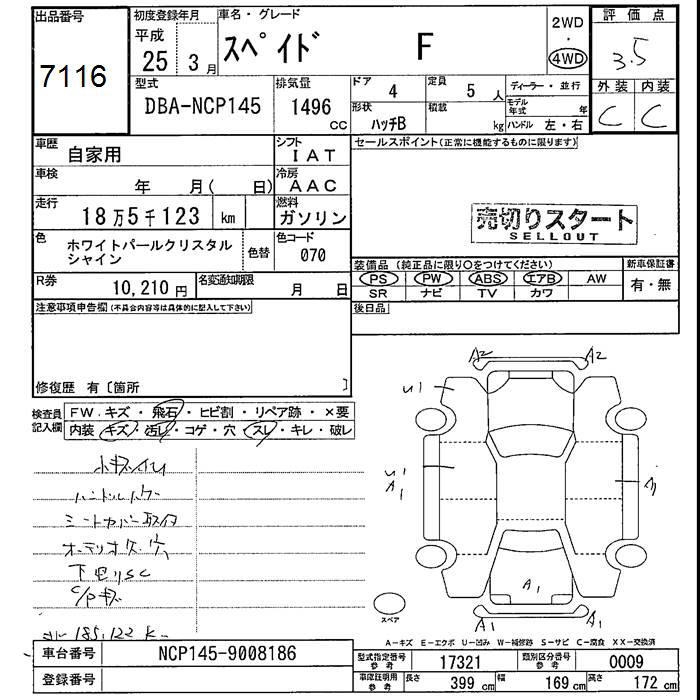 出品番号
7116
初度登録年月
平成
25年 3月
車名・グレード
スペイド F
2WD
・
4WD
評価点
3.5
外装 内装
C C
型式
DBA-NCP145
排気量
1496
CC
ドア 4
定員 5人
ディーラー・並行
形状 ハッチB
積載 kg
モデル年式 年
ハンドル 左・右
車歴
自家用
シフト
IAT
車検
年 月( 日)
冷房
AAC
走行
18万5千123 km
燃料
ガソリン
色
ホワイトパールクリスタル
シャイン
色替
色コード
070
R券
10,210円
名変通知期限
月 日
セールスポイント(正常に機能するものに限ります)
売切りスタート
SELLOUT
装備品(純正品に限り○をつけてください)
PS PW ABS エアB AW
SR ナビ TV カワ
新車保証書
有・無
後日品
注意事項申告欄(不具合内容等は具体的に記入して下さい)
修復歴 有〔箇所 〕
検査員
記入欄
FW.キズ・飛石・ヒビ割・リペア跡・×要
内装 キズ・汚レ・コゲ・穴・スレ・キレ・破レ
シートカバー取付
下回りSC
185,122 K
A2 A2
U1
U1
A1
A1
A1 A1
スペア
A-キズ E-エクボ U-凹み W-補修跡 S-サビ C-腐食 XX-交換済
車台番号
NCP145-9008186
登録番号
型式指定番号
参考
17321
類別区分番号
参考
0009
車庫証明用
参考
長さ 399 cm
幅 169 cm
高さ 172 cm